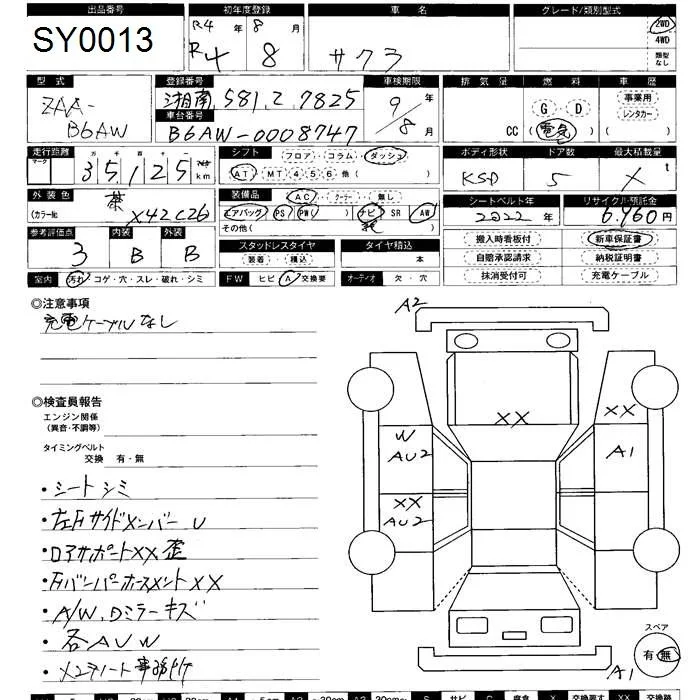 出品番号 初年度登録 車名 グレード/類別型式
SY0013
R4 年 8 月
R4 8
サクラ
2WD
4WD
類型なし
型式 登録番号 車検期限 排気量 燃料 車歴
ZAA-B6AW
湘南 581 て 7825
9 年 8 月
車台番号
B6AW-0008747
CC
G D
電気
( )
事業用
レンタカー
( )
走行距離 シフト ボディ形状 ドア数 最大積載量
マーク 十 万 千 百 十
35,125 km
フロア コラム ダッシュ
AT MT 4 5 6 他 ( )
5
t
外装色 装備品 シートベルト年 リサイクル預託金
茶
(カラーNo X42C26)
AC クーラー 無し
エアバッグ PS PW ( ) ナビ SR AW
その他( )
2022
6,960 円
参考評価点 内装 外装
3 B B
スタッドレスタイヤ タイヤ積込
装着 積込
本
搬入時看板付 新車保証書
自賠承認請求 納税証明書
抹消受付可 充電ケーブル
室内 汚れ・コゲ・穴・スレ・破れ・シミ FW ヒビ A 交換要 オーディオ 欠・穴
◎注意事項
充電ケーブルなし
◎検査員報告
エンジン関係
(異音・不調等)
タイミングベルト
交換 有・無
・シートシミ
・左Fサイドメンバー U
・ロアサポートXX歪
・Fバンパーホースメント XX
・A/W、Dミラーキズ
・各AUW
・メンテノート事務付け
A2
XX
XX
W
AU2
A1
XX
AU2
スペア
有 無
A1